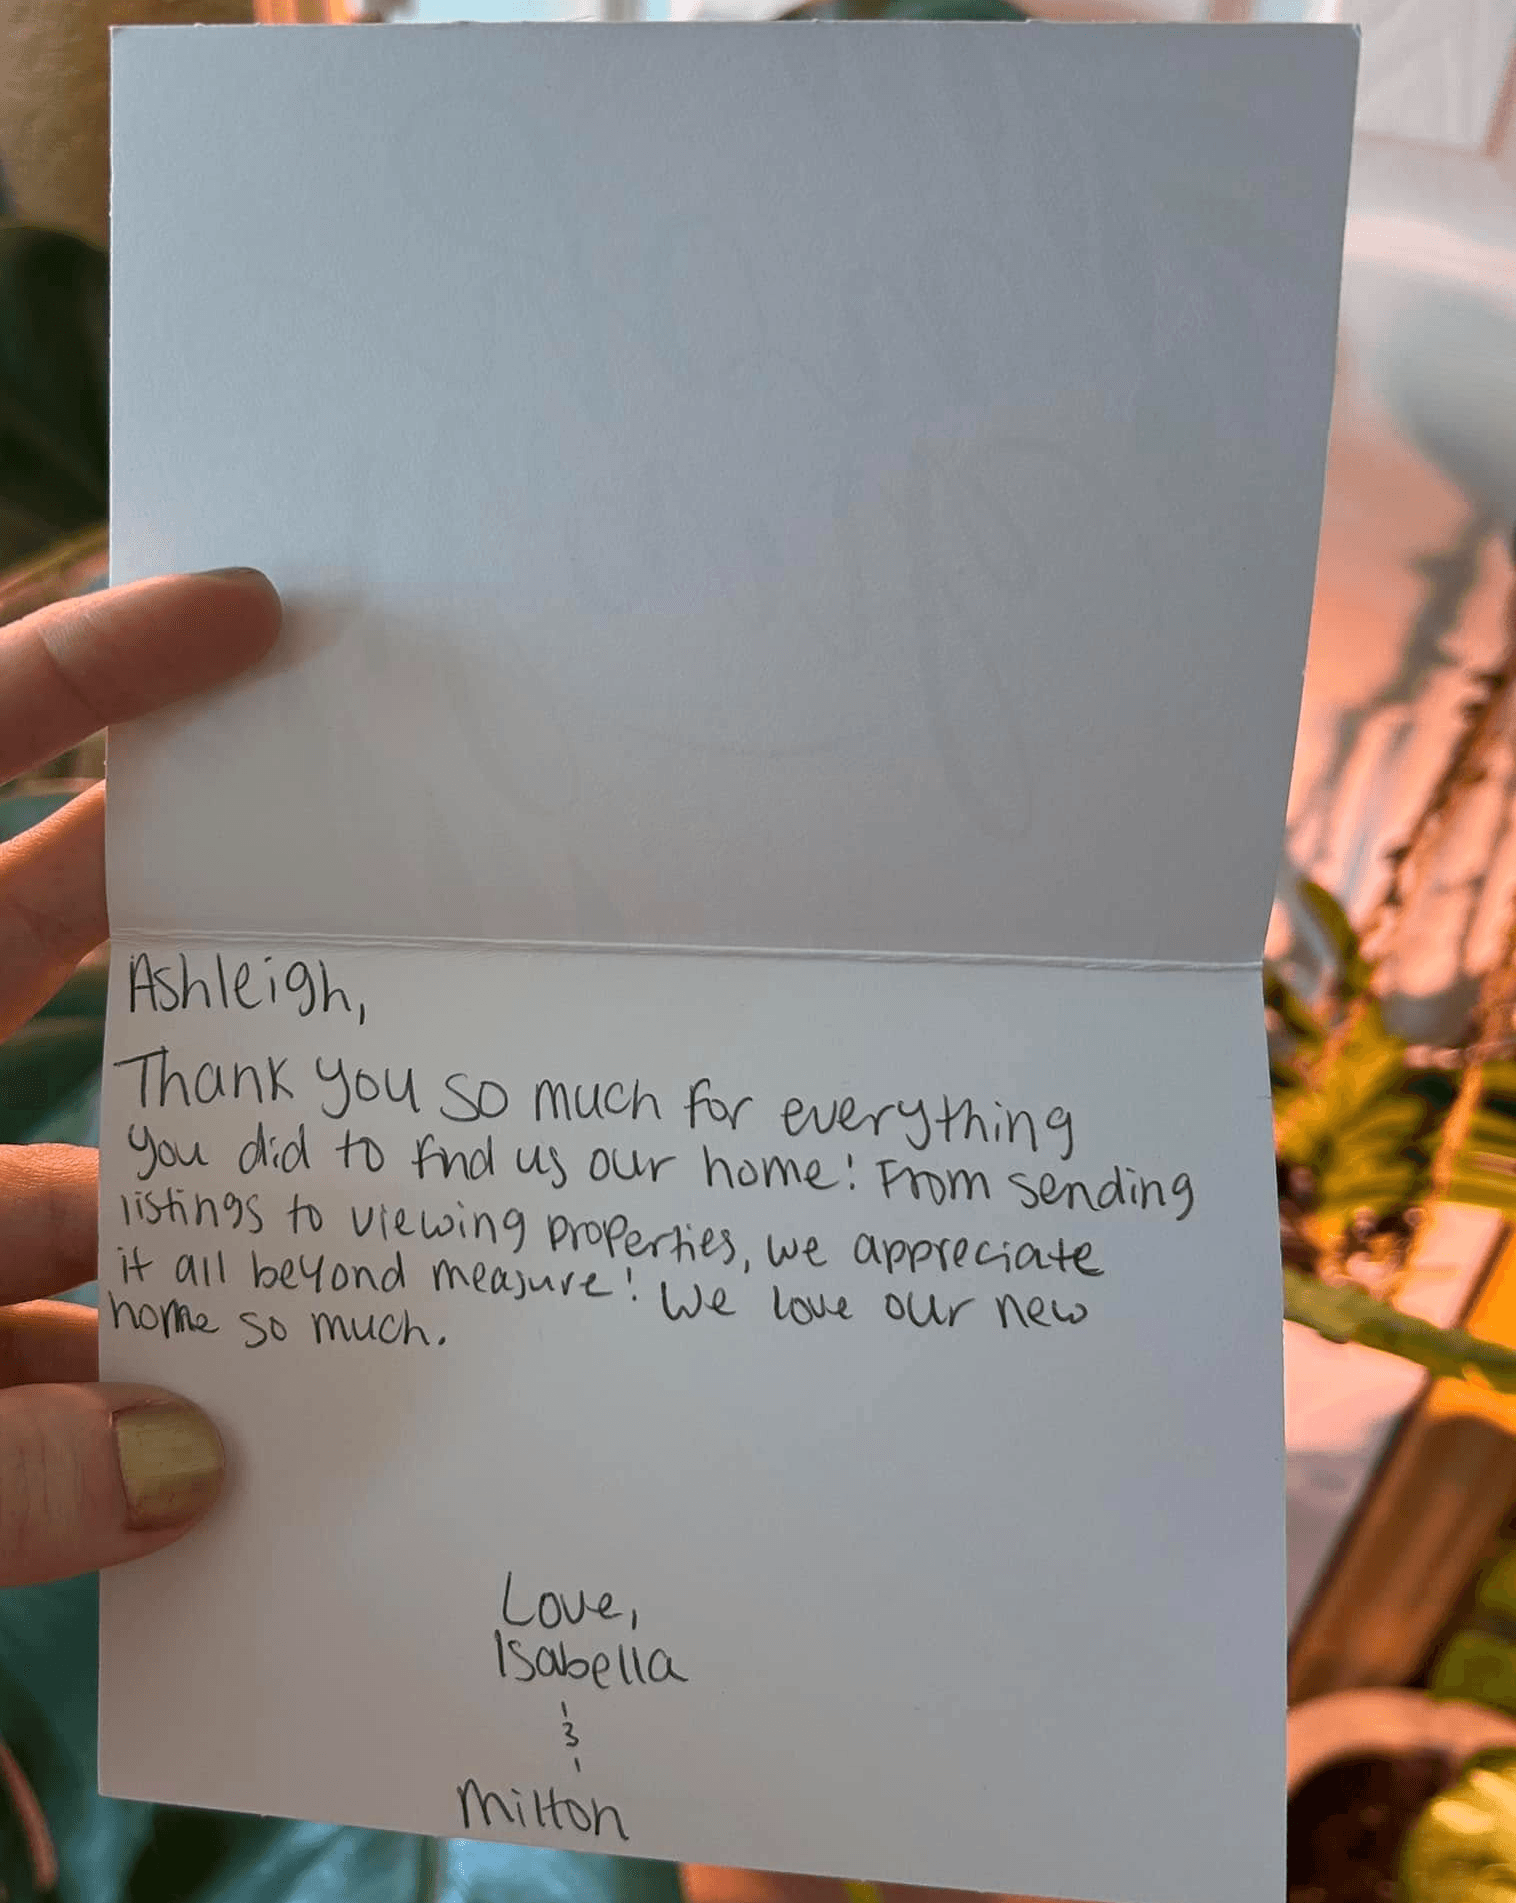 Ashleigh,
Thank you so much for everything
you did to find us our home! From sending
listings to viewing properties, we appreciate
it all beyond measure! We love our new
home so much.
Love,
Isabella
&
Milton